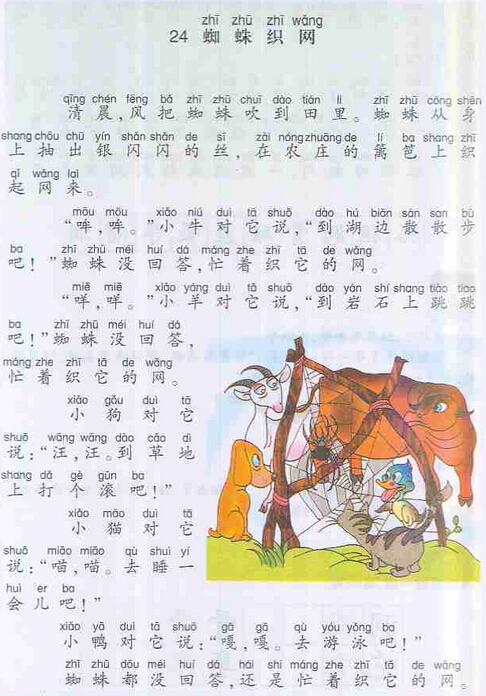 zhī zhū zhī wǎng
24 蜘蛛织网
qīng chén fēng bǎ zhī zhū chuī dào tián li zhī zhū cóng shēn
清晨,风把蜘蛛吹到田里。蜘蛛从身
shang chōu chū yín shǎn shǎn de sī zài nóng zhuāng de lí ba shang zhī
上抽出银闪闪的丝,在农庄的篱笆上织
qǐ wǎng lai
起网来。
mōu mōu xiǎo niú duì tā shuō dào hú biān sàn san bù
“哞,哞。”小牛对它说,“到湖边散散步
ba zhī zhū méi huí dá máng zhe zhī tā de wǎng
吧!”蜘蛛没回答,忙着织它的网。
miē miē xiǎo yáng duì tā shuō dào yán shí shang tiào tiao
“咩,咩。”小羊对它说,“到岩石上跳跳
ba zhī zhū méi huí dá
吧!”蜘蛛没回答,
máng zhe zhī tā de wǎng
忙着织它的网。
xiǎo gǒu duì tā
小狗对它
shuō wāng wāng dào cǎo dì
说:“汪,汪。到草地
shang dǎ gè gǔn ba
上打个滚吧!”
xiǎo māo duì tā
小猫对它
shuō miāo miāo qù shuì yí
说:“喵,喵。去睡一
huì er ba
会儿吧!”
xiǎo yā duì tā shuō gā gā qù yóu yǒng ba
小鸭对它说:“嘎,嘎。去游泳吧!”
zhī zhū dōu méi huí dá hái shì máng zhe zhī tā de wǎng
蜘蛛都没回答,还是忙着织它的网。